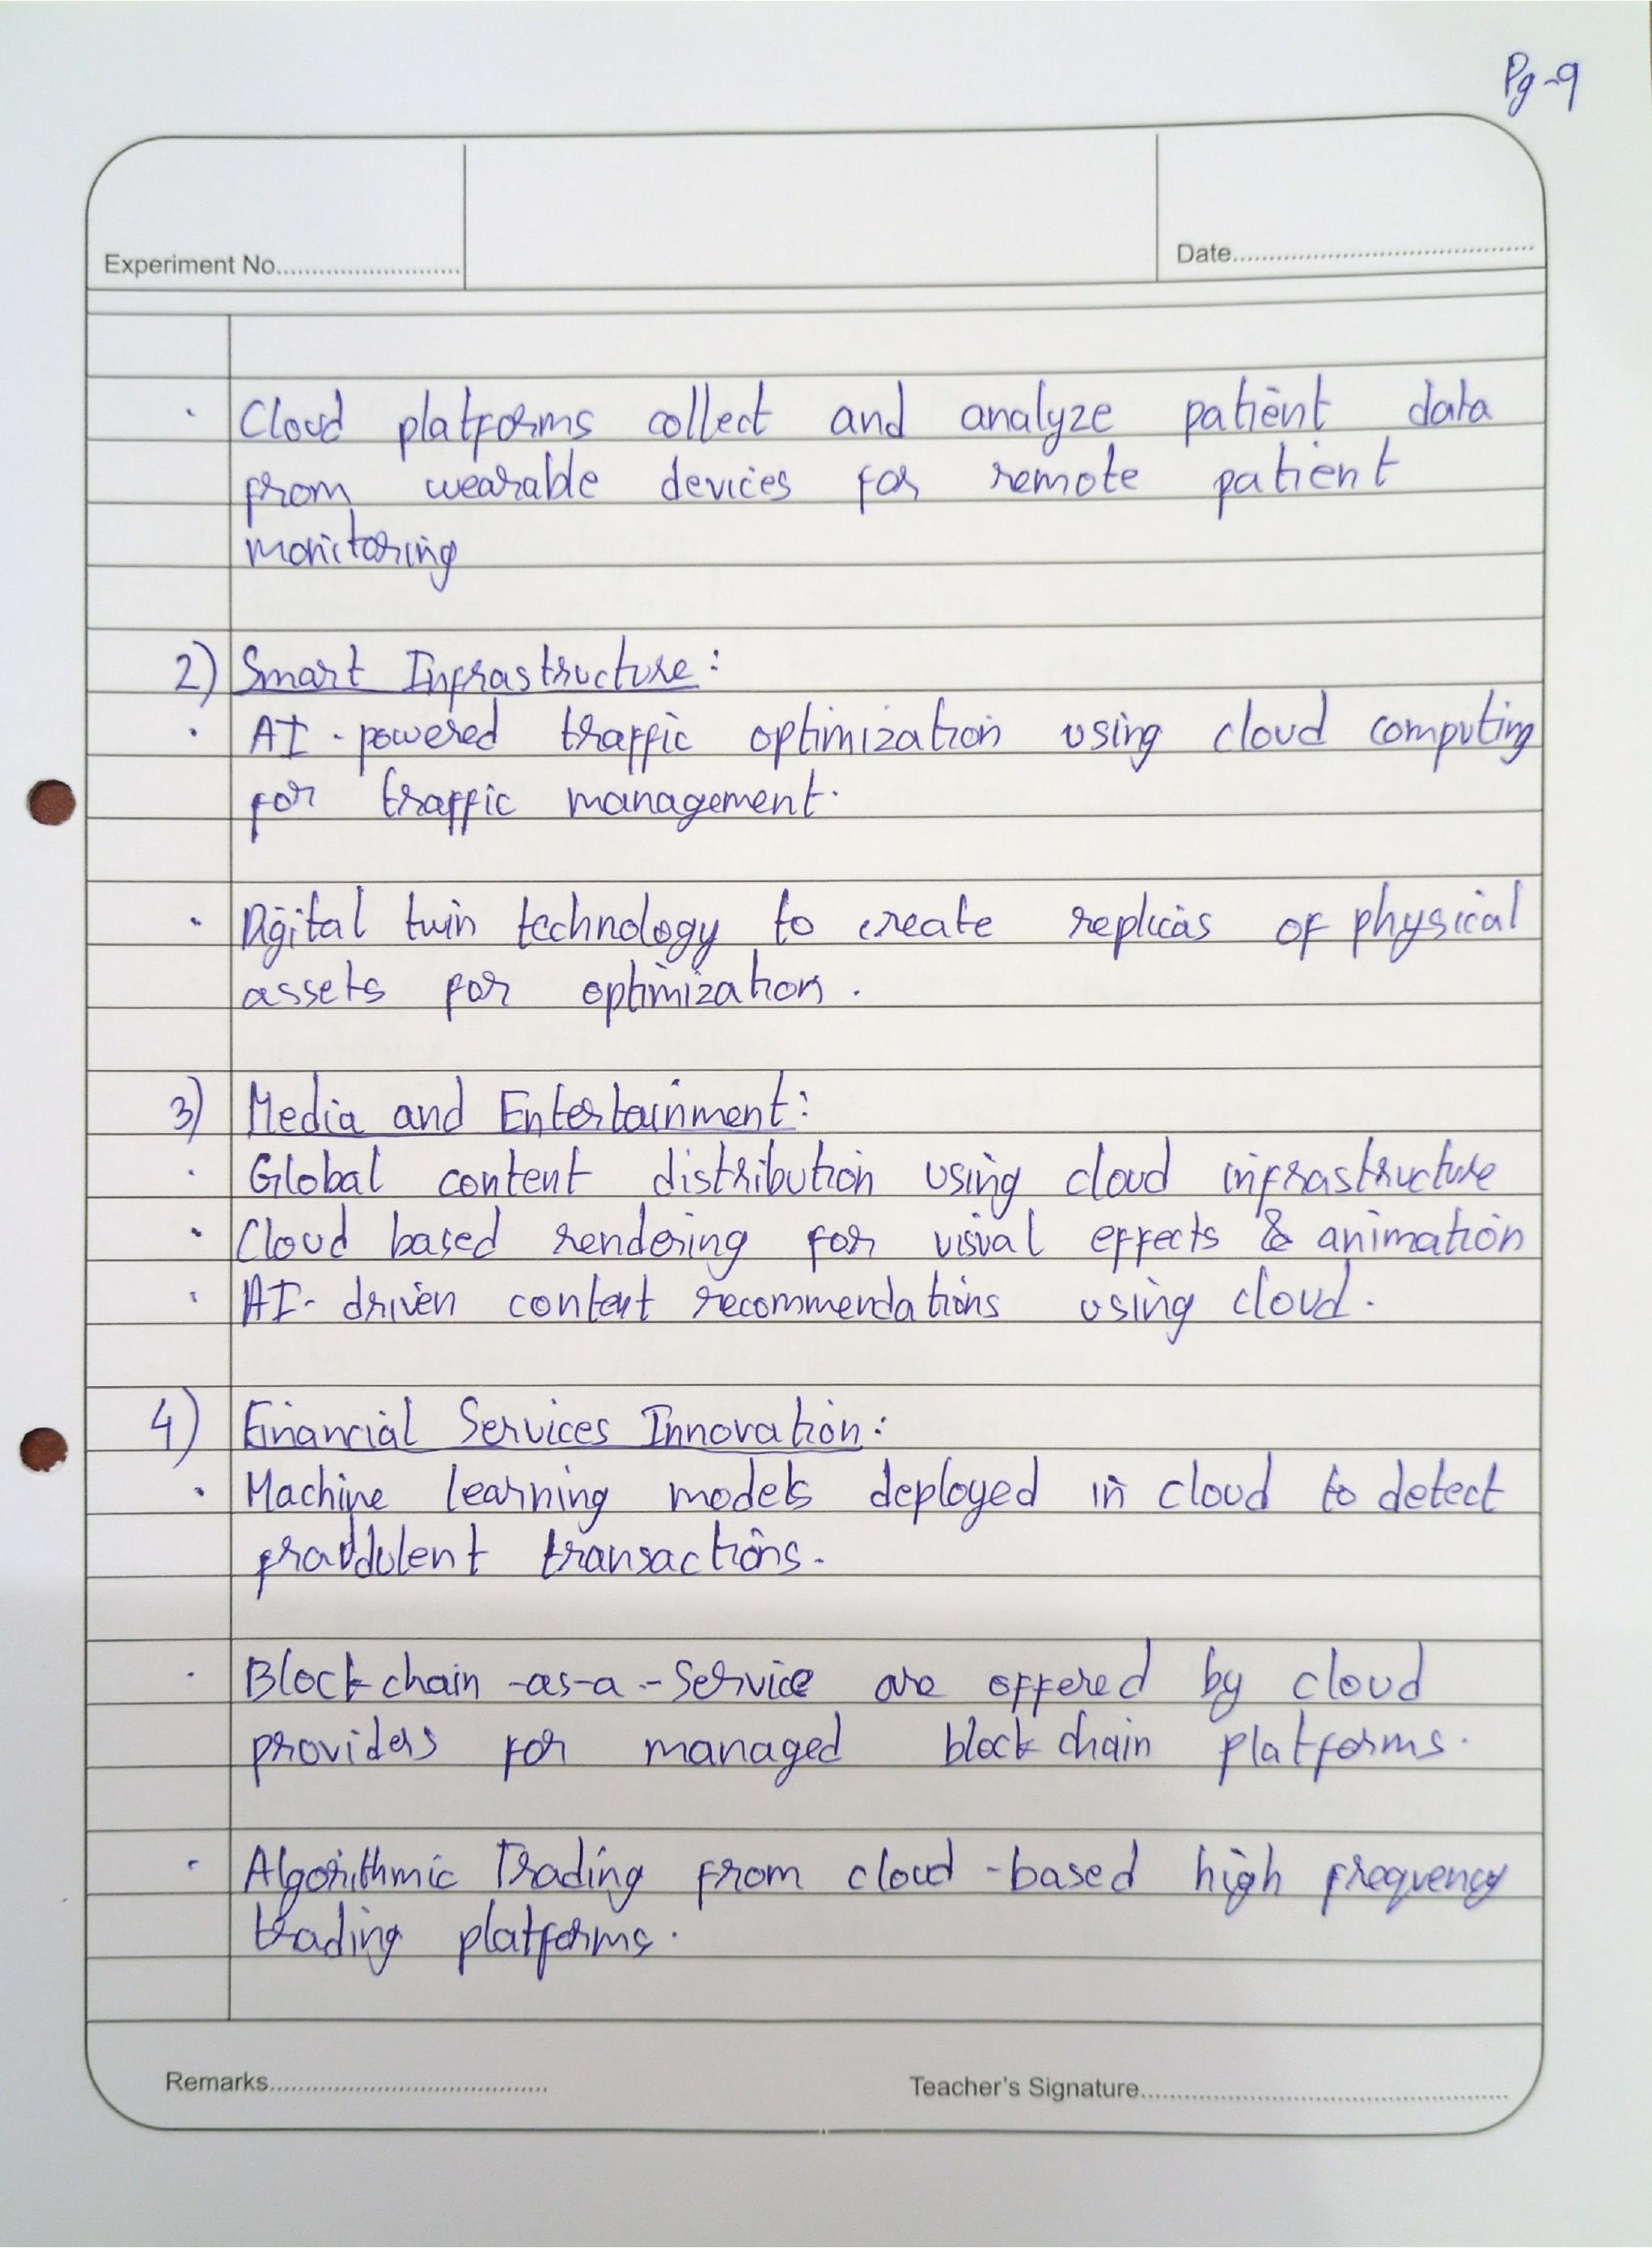 Pg-9
Experiment No.
Date
· Cloud platforms collect and analyze patient data
from wearable devices for remote patient
monitoring
2) Smart Infrastructure:
· AI-powered traffic optimization using cloud computing
for traffic management.
· Digital twin technology to create replicas of physical
assets for optimization.
3) Media and Entertainment:
· Global content distribution using cloud infrastructure
· Cloud based rendering for visual effects & animation
· AI-driven content recommendations using cloud.
4) Financial Services Innovation:
· Machine learning models deployed in cloud to detect
fraudulent transactions.
· Block chain-as-a-Service are offered by cloud
providers for managed block chain platforms.
· Algorithmic Trading from cloud-based high frequency
trading platforms.
Remarks
Teacher's Signature